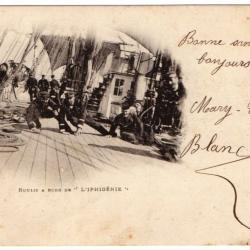 Bonne
bonjours
Mary
Blanc
ROULIS A BORD DE "L'IPHIGÉNIE"